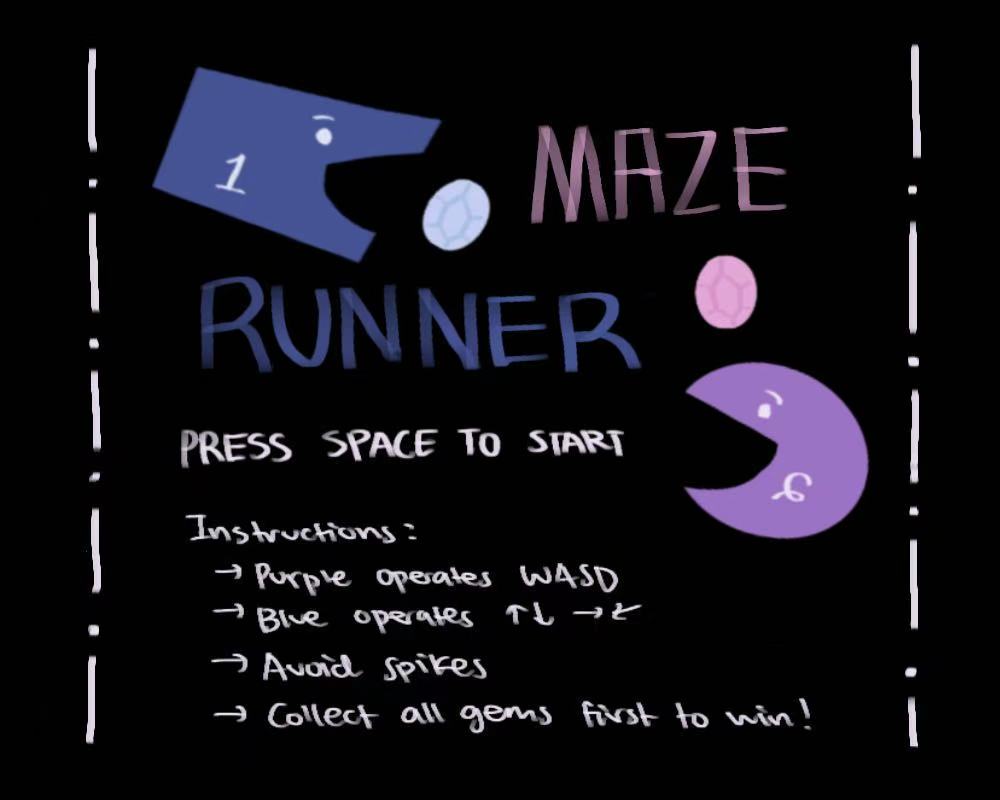 1
MAZE
RUNNER
PRESS SPACE TO START
Instructions:
→ Purple operates WASD
→ Blue operates ↑↓ →←
→ Avoid spikes
→ Collect all gems first to win!